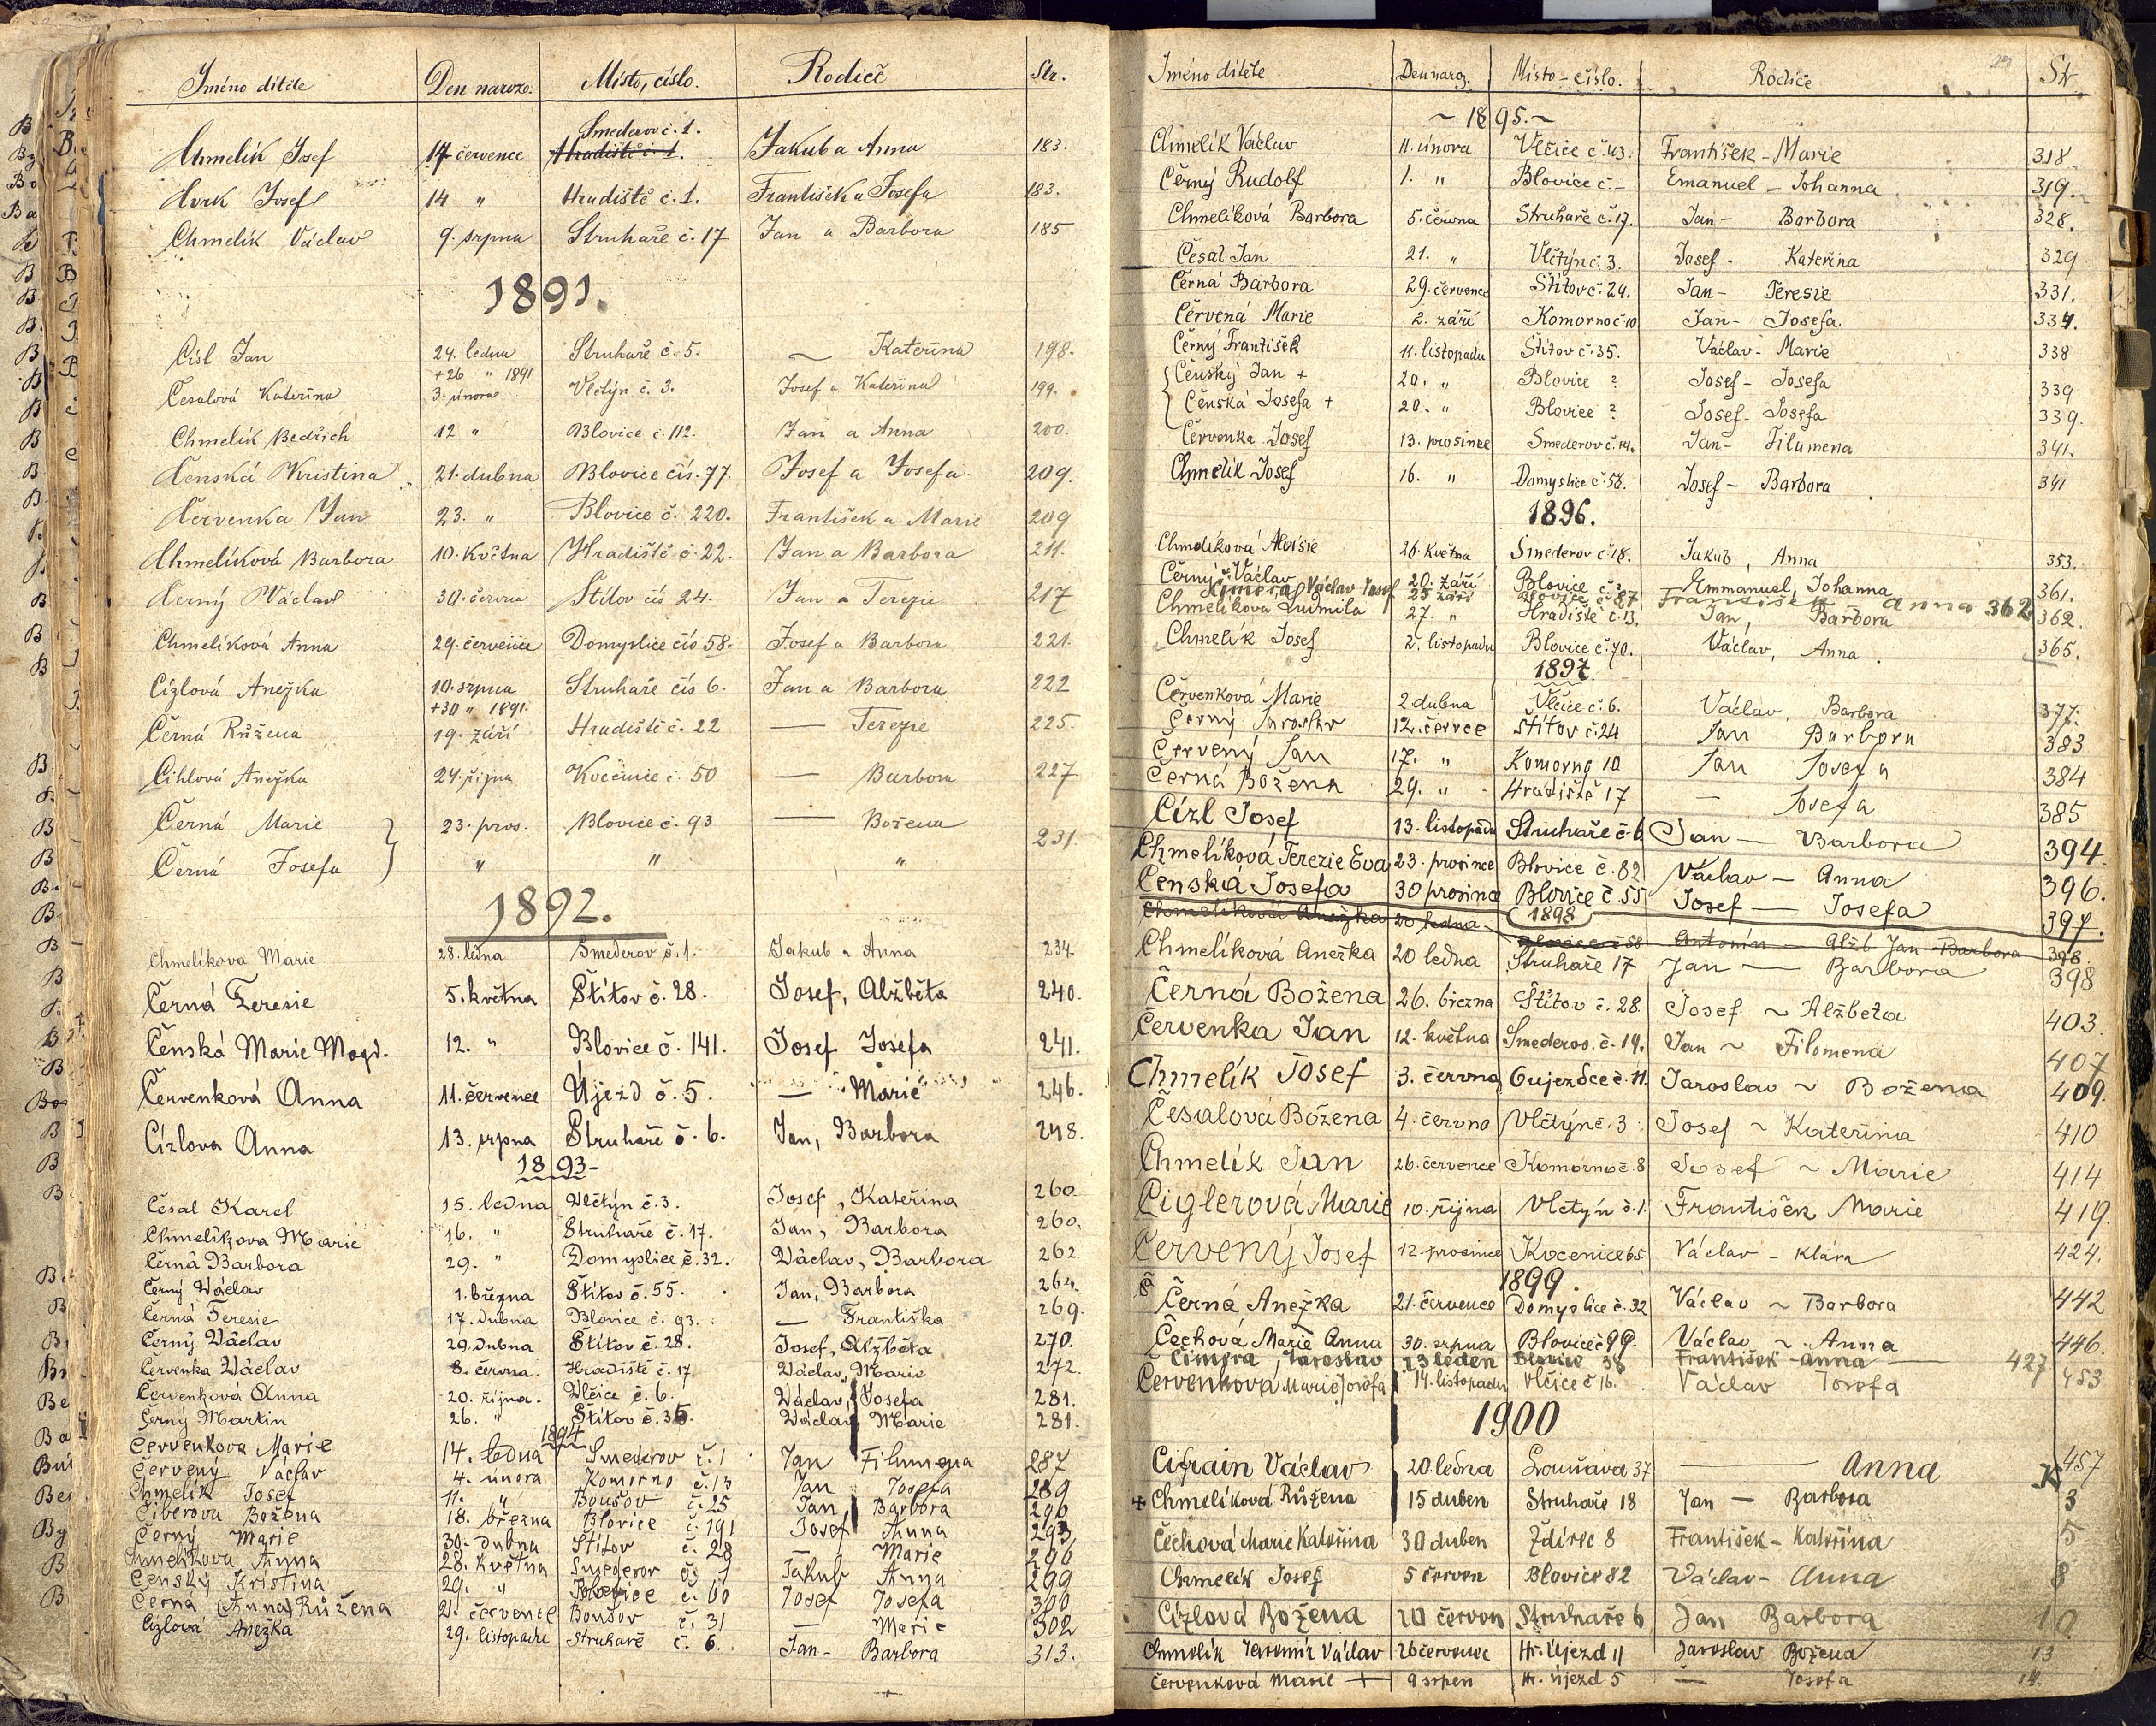 Jméno dítěte Den naroze. Místo, číslo. Rodiče Str.
Smederov č. 1.
Chmelík Josef 14 července Hradiště č. 1. Jakub a Anna 183.
Josef 14 " Hradiště č. 1. František a Josefa 183.
Chmelík Václav 9. srpna Struhaře č. 17 Jan a Barbora 185
1891.
Císl Jan 24. ledna Struhaře č. 5. — Kateřina 198.
+26 " 1891
Česalová Kateřina 3. února Vlčtýn č. 3. Josef a Kateřina 199.
Chmelík Bedřich 12 " Blovice č. 112. Jan a Anna 200.
Čenská Kristina 21. dubna Blovice čís. 77. Josef a Josefa 209.
Červenka Jan 23. " Blovice č. 220. František a Marie 209
Chmelíková Barbora 10. května Hradiště č. 22. Jan a Barbora 211.
Černý Václav 30. června Štítov čís 24. Jan a Terezie 217
Chmelíková Anna 29. července Domyslice čís 58. Josef a Barbora 221.
Cízlová Anežka 10. srpna Struhaře čís 6. Jan a Barbora 222
+30 " 1891.
Černá Růžena 19. září Hradiště č. 22 — Terezie 225.
Cihlová Anežka 24. října Kocenice č. 50 — Barbora 227
Černá Marie } 23. pros. Blovice č. 93 — Božena 231.
Černá Josefa " " "
1892.
Chmelíkova Marie 28. ledna Smederov č. 1. Jakub a Anna 234.
Černá Teresie 5. května Štítov č. 28. Josef, Alžběta 240.
Čenská Marie Magd. 12. " Blovice č. 141. Josef Josefa 241.
Červenková Anna 11. červenec Újezd č. 5. — Marie 246.
Cízlova Anna 13. srpna Struhaře č. 6. Jan, Barbora 248.
1893-
Česal Karel 15. ledna Vlčtýn č. 3. Josef, Kateřina 260.
Chmelíkova Marie 16. " Struhaře č. 17. Jan, Barbora 260.
Černá Barbora 29. " Domyslice č. 32. Václav, Barbora 262
Černý Václav 1. března Štítov č. 55. Jan, Barbora 264.
Černá Teresie 17. dubna Blovice č. 93. — Františka 269.
Černý Václav 29. dubna Štítov č. 28. Josef, Alžběta 270.
Červenka Václav 8. června. Hradiště č. 17 Václav, Marie 272.
Červenkova Anna 20. října. Vlčice č. 6. Václav, Josefa 281.
Černý Martin 26. " Štítov č. 35. Václav Marie 281.
1894
Červenkova Marie 14. ledna Smederov č. 1 Jan Filumena 287
Červený Václav 4. února Komorno č. 13 Jan Josefa 289
Chmelík Josef 11. " Boušov č. 25 Jan Barbora 290
Ciberova Božena 18. března Blovice č. 191 Josef Anna 293
Černý Marie 30. dubna Štítov č. 28 — Marie 296
Chmelíkova Anna 28. května Smederov č. 1 Jakub Anna 299
Čenský Kristina 29. " Blovice č. 60 Josef Josefa 300
Černá (Anna) Růžena 21. červenec Boušov č. 31 — Marie 302
Cízlová Anežka 29. listopadu Struhaře č. 6. Jan- Barbora 313.
Jméno dítěte Den naroz. Místo - číslo. Rodiče Str.
~ 1895. ~
Chmelík Václav 11. února Vlčice č. 43. František - Marie 318.
Černý Rudolf 1. " Blovice č. - Emanuel - Johanna 319.
Chmelíková Barbora 5. června Struhaře č. 17. Jan - Barbora 328.
Česal Jan 21. " Vlčtýn č. 3. Josef - Kateřina 329
Černá Barbora 29. červenec Štítov č. 24. Jan - Teresie 331.
Červená Marie 2. září Komorno č 10 Jan - Josefa. 334.
Černý František 11. listopadu Štítov č. 35. Václav - Marie 338
{ Čenský Jan + 20. " Blovice ? Josef - Josefa 339
Čenská Josefa + 20. " Blovice ? Josef - Josefa 339.
Červenka Josef 13. prosince Smederov č. 14. Jan - Filumena 341.
Chmelík Josef 16. " Domyslice č. 58. Josef - Barbora 341
1896.
Chmelíková Aloisie 26. května Smederov č. 18. Jakub, Anna 353.
Černý Václav 20. září Blovice Emmanuel, Johanna 361.
Čimera Václav Josef 25 září Blovice č 87 František Anna 362
Chmelíkova Ludmila 27. " Hradiště č. 13. Jan, Barbora 362.
Chmelík Josef 2. listopadu Blovice č. 70. Václav, Anna. 365.
1897.
Červenková Marie 2 dubna Vlčice č. 6. Václav, Barbora 377.
Černý Jaroslav 12. červce Štítov č. 24 Jan Barbora 383
Červený Jan 17. " Komorno 10 Jan Josefa 384
Černá Božena 29. " Hradiště 17 — Josefa 385
Cízl Josef 13. listopadu Struhaře č. 6 Jan — Barbora 394.
Chmelíková Terezie Eva 23. prosince Blovice č. 82 Václav — Anna 396.
Čenská Josefa 30 prosince Blovice č. 55 Josef — Josefa 397.
1898
Chmelíková Anežka 20 ledna Blovice č 58 Antonín — Alžb Jan Barbora 398.
Chmelíková Anežka 20 ledna Struhaře 17 Jan — Barbora 398
Černá Božena 26. března Štítov č. 28. Josef ~ Alžběta 403.
Červenka Jan 12. května Smederov. č. 14. Jan ~ Filomena 407
Chmelík Josef 3. června Oujezdce č. 11. Jaroslav ~ Božena 409.
Česalová Božena 4. června Vlčtýn č. 3. Josef ~ Kateřina 410
Chmelík Jan 26. července Komorno č. 8 Josef ~ Marie 414
Ciglerová Marie 10. října Vlčtýn č. 1. František Marie 419.
Červený Josef 12. prosince Kocenice 65 Václav - Klára 424.
1899.
Č
Černá Anežka 21. července Domyslice č. 32 Václav ~ Barbora 442
Čechová Marie Anna 30. srpna Blovice č 99. Václav ~ Anna 446.
Čimera, Jaroslav 23 leden Blovice 38 František - Anna — 427
Červenková Marie Josefa 14. listopadu Vlčice č 16. Václav Josefa 453
1900
Cifrain Václav 20 ledna Louňava 37 — Anna 457
K
+ Chmelíková Růžena 15 duben Struhaře 18 Jan — Barbora 3
Čechová Marie Kateřina 30 duben Ždírec 8 František - Kateřina 5
Chmelík Josef 5 červen Blovice 82 Václav - Anna 8
Cízlová Božena 20 červen Struhaře 6 Jan Barbora 10
Chmelík Jaromír Václav 26 červenec Hr. Újezd 11 Jaroslav Božena 13
Červenková Marie + 9 srpen Hr. Újezd 5 — Josefa 14.